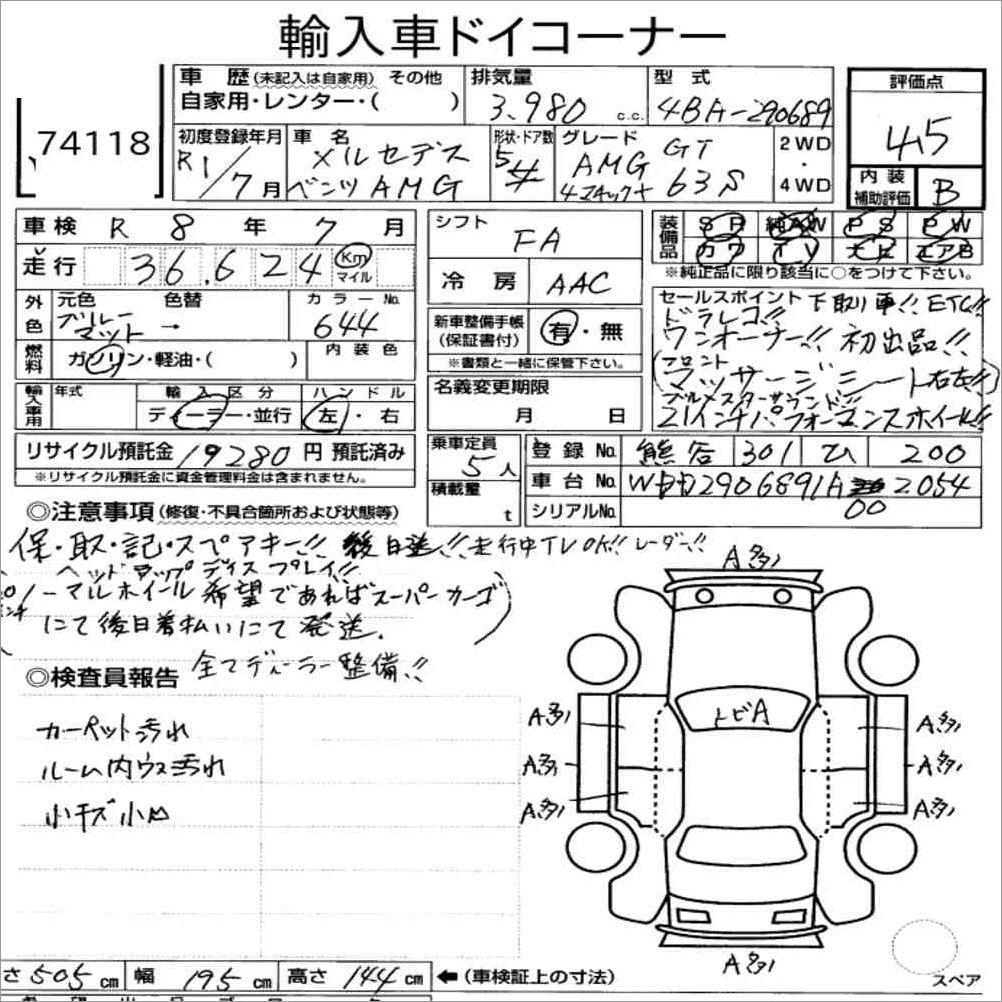 輸入車ドイコーナー
74118
車歴(未記入は自家用) その他
自家用・レンター・( )
排気量
3.980 c.c.
型式
4BA-290689
評価点
4.5
内装
補助評価
B
初度登録年月
R1/7月
車名
メルセデス
ベンツ AMG
形状・ドア数
5
グレード
AMG GT
63S
4マチック+
2WD
・
4WD
車検 R 8 年 7 月
走行 36.624 Km
マイル
外色
元色 色替
ブルー
マット →
カラーNo.
644
燃料
ガソリン・軽油・( )
内装色
輸入車用
年式
輸入区分
ディーラー・並行
ハンドル
左・右
リサイクル預託金 19280 円 預託済み
※リサイクル預託金に資金管理料金は含まれません。
シフト
FA
冷房
AAC
新車整備手帳
(保証書付)
有・無
※書類と一緒に保管下さい。
名義変更期限
月 日
装備品
SR 純AW PS PW
カワ TV ナビ エアB
※純正品に限り該当に○をつけて下さい。
セールスポイント 下取り車!! ETC!!
ドラレコ!!
ワンオーナー!! 初出品!!
(フロント
マッサージシート右左!!)
ブルメスターサウンド!!
21インチパフォーマンスホイール!!
乗車定員
5人
積載量
t
登録No. 熊谷 301 ひ 200
車台No. WDD2906891A 2054
00
シリアルNo.
◎注意事項(修復・不具合箇所および状態等)
保・取・記・スペアキー!! 後日送!! 走行中TV OK!! レーダー!!
ヘッドアップディスプレイ!!
ノーマルホイール希望であればスーパーカーゴ
にて後日着払いにて発送.
全てディーラー整備!!
◎検査員報告
カーペット汚れ
ルーム内ウス汚れ
小キズ小凹
A多ﾉ
トビA
A多ﾉ
A多ﾉ
A多ﾉ
A多ﾉ
A多ﾉ
A多ﾉ
A多ﾉ
スペア
さ 505 cm 幅 195 cm 高さ 144 cm ←(車検証上の寸法)